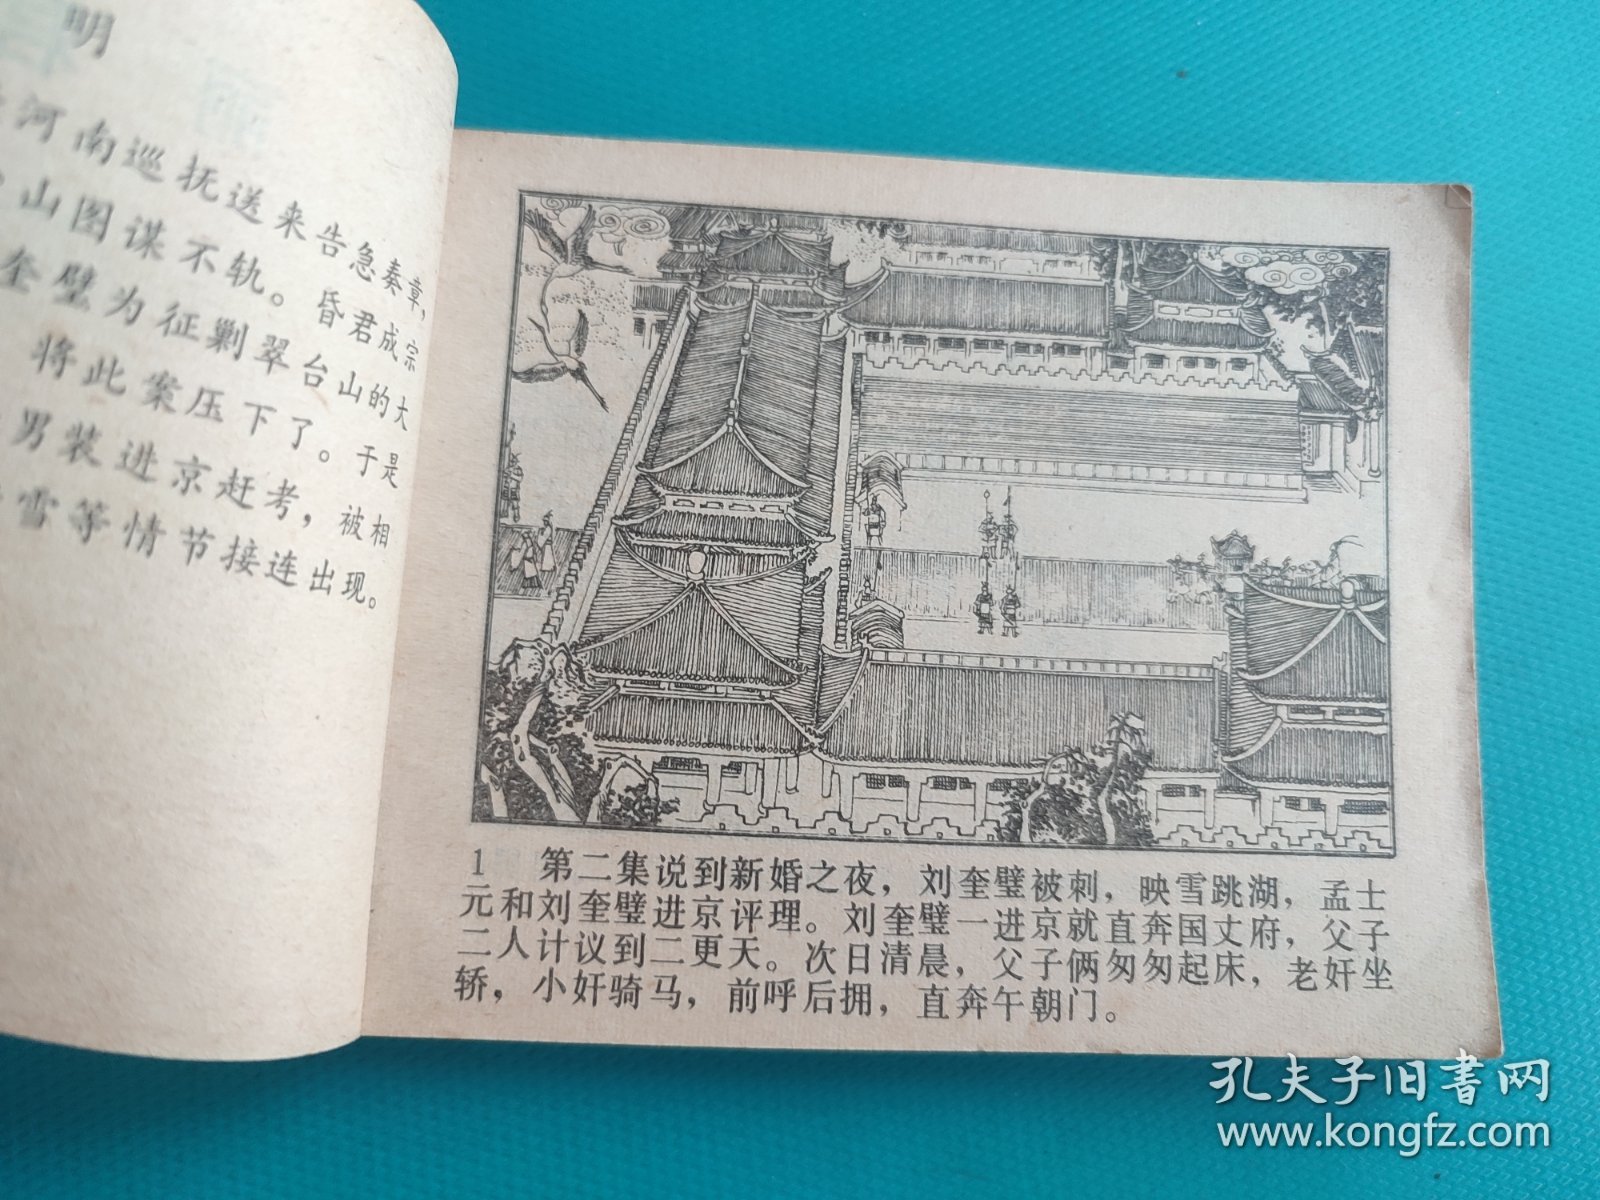 明
河南巡抚送来告急奏章，
山图谋不轨。昏君成宗
奎璧为征剿翠台山的大
将此案压下了。于是
男装进京赶考，被相
雪等情节接连出现。
1 第二集说到新婚之夜，刘奎璧被刺，映雪跳湖，孟士
元和刘奎璧进京评理。刘奎璧一进京就直奔国丈府，父子
二人计议到二更天。次日清晨，父子俩匆匆起床，老奸坐
轿，小奸骑马，前呼后拥，直奔午朝门。
孔夫子旧书网
www.kongfz.com